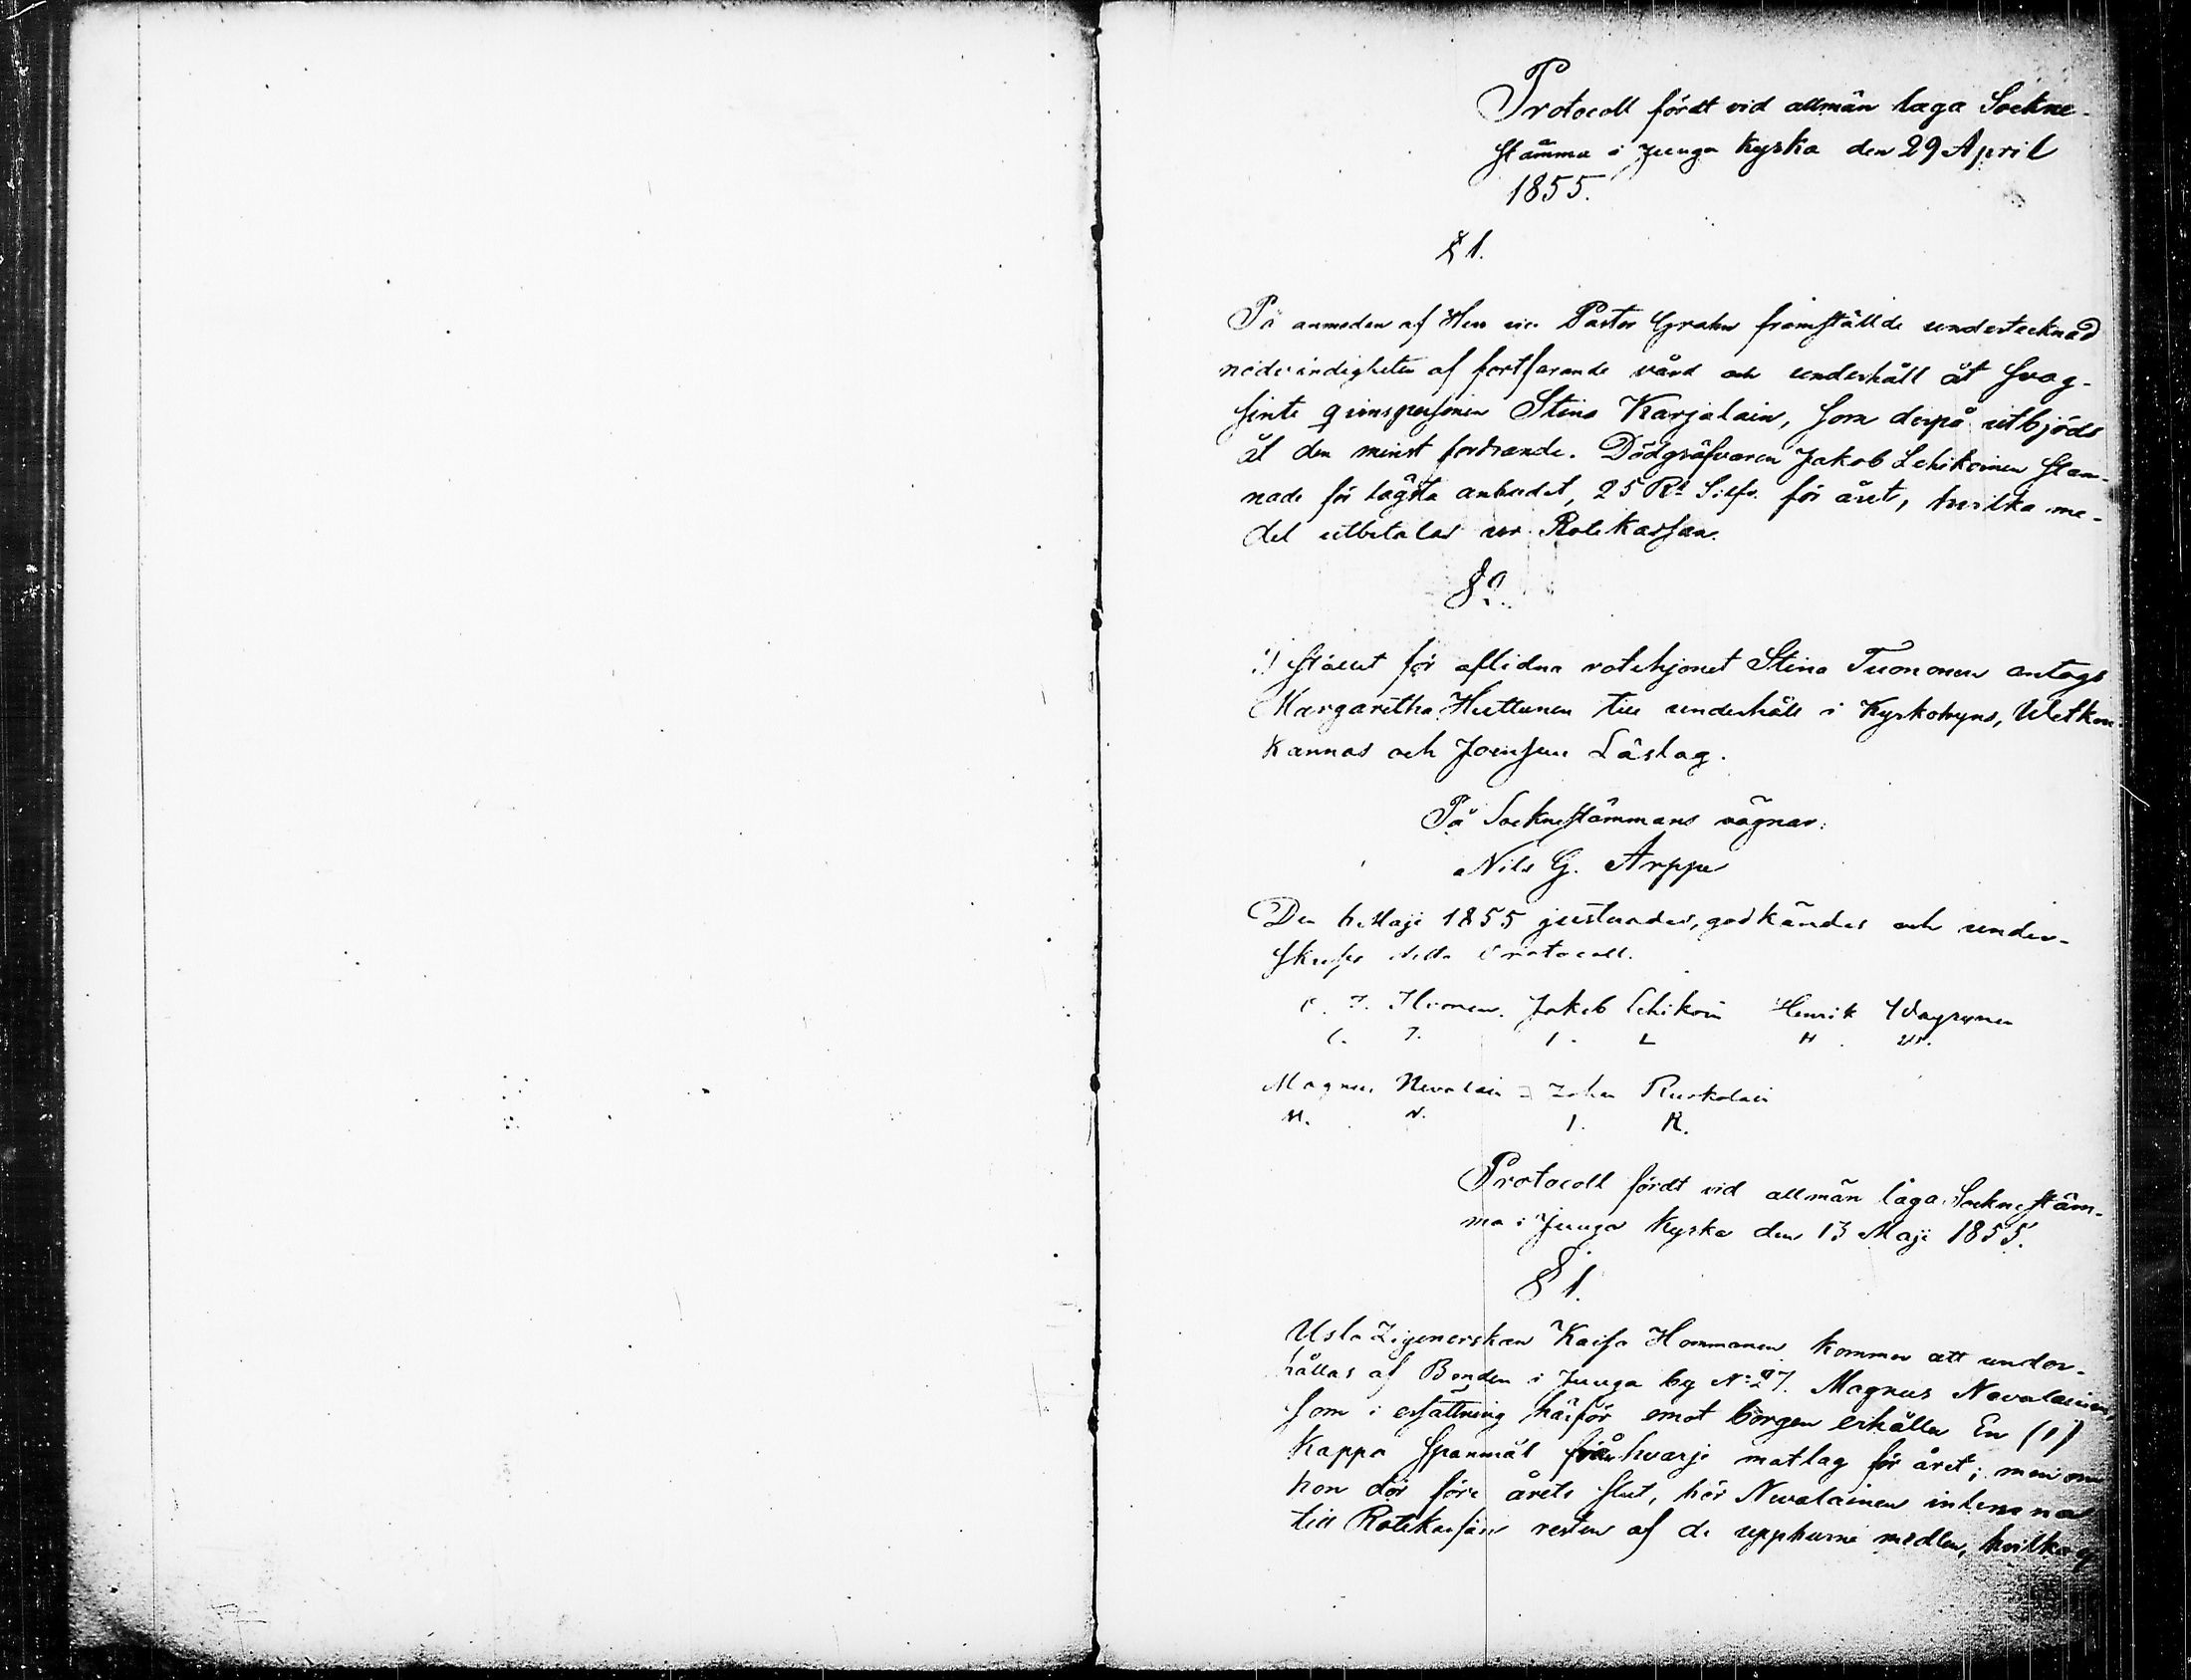 Protocoll fördt vid allmän laga Sockne-
stämma i Juuga Kyrka den 29 April
1855.
§ 1.
På anmodan af Herr vice Pastor Grahn framställde undertecknad
nödvändigheten af fortfarande vård och underhåll åt svag-
sinte qvinspersonen Stina Karjalain, som derpå utbjöds
åt den minst fordrande. Dödgräfvaren Jakob Lehikoinen stan-
nade för lägsta anbudet, 25 Rl Silfr. för året, hvilka me-
del utbetalas ur Rotekassan.
§ 2.
I stället för aflidna rotehjonet Stina Tuononen antogs
Margaretha Huttunen till underhåll i Kyrkobyns,
Kannas och Joensuu Läslag.
På Sockneständmans vägnar:
Nils G. Arppe
Den 6 Maji 1855 justerades, godkändes och under-
skrefs detta Protocoll.
Jakob Lehikoin Henrik Wäyrynen
C. I. I. L H. W.
Magnus Nevalain Johan Ruokolain
M. N. I. R.
Protocoll fördt vid allmän laga Socknestäm-
ma i Juuga Kyrka den 13 Maji 1855.
§ 1.
Usla Zigenerskan Kaisa Hommanen kommer att under-
hållas af Bonden i Juuga by No 27. Magnus Nevalainen,
som i ersättning härför emot borgen erhåller En (1)
Kappa spanmål från hvarje matlag för året; men om
hon dör före årets slut, bör Nevalainen inlemna
till Rotekassan resten af de uppburne medlen, hvilka